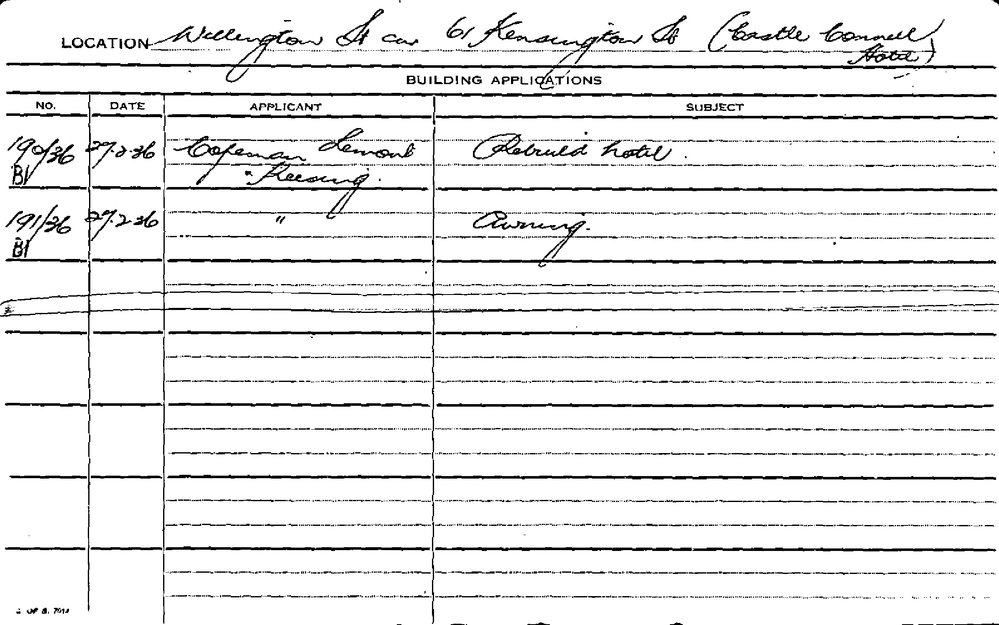 LOCATION Wellington St cnr 61 Kensington St (Castle Connell
Hotel)
BUILDING APPLICATIONS
NO. DATE APPLICANT SUBJECT
190/36 27.2.36 Copeman Lemont Rebuild hotel.
B1 " Keesing.
191/36 27.2.36 " Awning.
B1